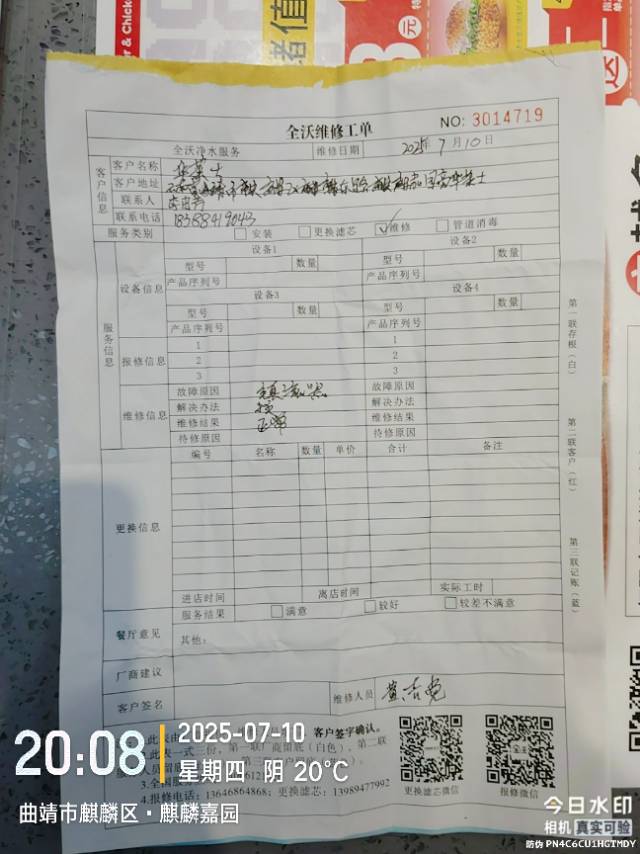 & Chick
元
全沃维修工单
NO: 3014719
全沃净水服务 维修日期 2025年7月10日
客户信息
客户名称 华莱士
客户地址
联系人
联系电话 18388419043
服务类别 安装 更换滤芯 维修 管道消毒
服务信息
设备信息
设备1 设备2
型号 数量 型号 数量
产品序列号 产品序列号
设备3 设备4
型号 数量 型号 数量
产品序列号 产品序列号
报修信息
1 1
2 2
3 3
维修信息
故障原因 故障原因
解决办法 解决办法
维修结果 正常 维修结果
待修原因 待修原因
更换信息
编号 名称 数量 单价 合计 备注
进店时间 离店时间 实际工时
服务结果 满意 较好 较差不满意
餐厅意见 其他:
厂商建议
客户签名 维修人员
第一联存根(白)
第二联客户(红)
第三联记账(蓝)
1.此表由 客户签字确认。
2.此表一式三份,第一联厂商留底(白色),第二联
3.全国服
4.报修电话:13646864868;更换滤芯:13989477992
更换滤芯微信 报修微信
20:08
2025-07-10
星期四 阴 20℃
曲靖市麒麟区·麒麟嘉园
今日水印
相机 真实可验
防伪 PN4C6CU1HGTMDY